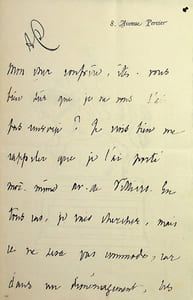 8. Avenue Percier
Mon cher confrère, êtes-vous
bien sûr que je ne vous l'ai
pas envoyé ? Je crois bien me
rappeler que je l'ai porté
moi-même av. de Villiers. En
tous cas, je vais chercher, mais
ce ne sera pas commode, car
dans un déménagement, les